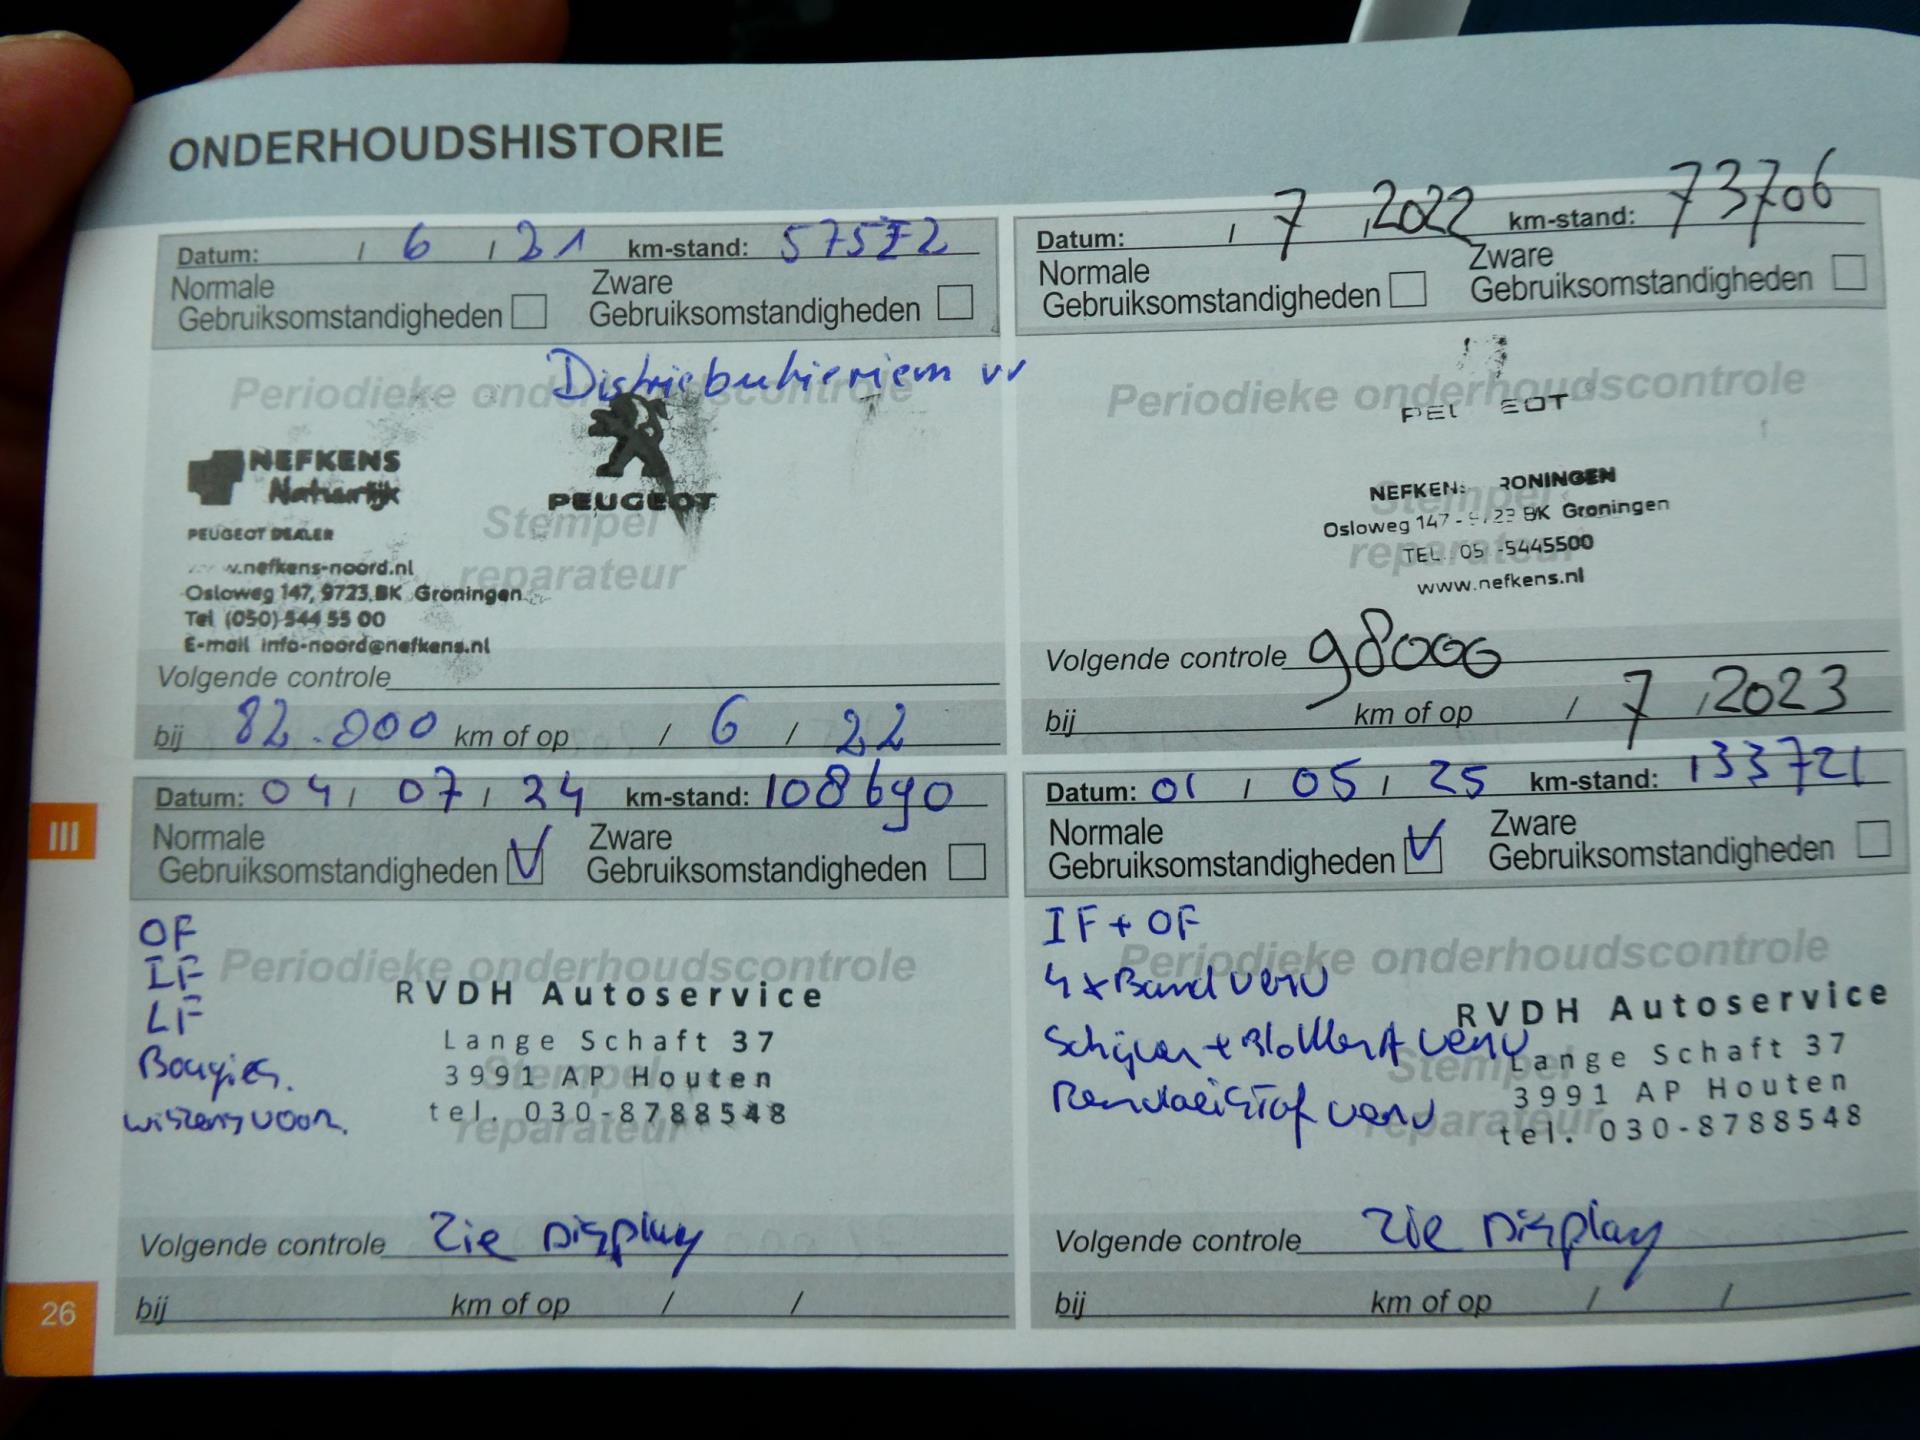 ONDERHOUDSHISTORIE
Datum: / 6 / 21 km-stand: 57572
Normale Gebruiksomstandigheden Zware Gebruiksomstandigheden
Distriebutieriem vv
Periodieke onderhoudscontrole
NEFKENS
Natuurlijk
PEUGEOT
PEUGEOT DEALER
Stempel
reparateur
w.nefkens-noord.nl
Osloweg 147, 9723 BK Groningen
Tel (050) 544 55 00
E-mail info-noord@nefkens.nl
Volgende controle
bij 82.000 km of op / 6 / 22
Datum: / 7 / 2022 km-stand: 73706
Normale Gebruiksomstandigheden Zware Gebruiksomstandigheden
Periodieke onderhoudscontrole
PEU EOT
NEFKEN RONINGEN
Stempel
Osloweg 147 - 9723 BK Groningen
reparateur
TEL. 05 -5445500
www.nefkens.nl
Volgende controle 98000
bij km of op / 7 / 2023
III
Datum: 04 / 07 / 24 km-stand: 108690
Normale Gebruiksomstandigheden Zware Gebruiksomstandigheden
OF
IF
LF
Bougies.
wissers voor.
Periodieke onderhoudscontrole
RVDH Autoservice
Lange Schaft 37
3991 AP Houten
Stempel
tel. 030-8788548
reparateur
Volgende controle Zie Display
bij km of op / /
Datum: 01 / 05 / 25 km-stand: 133721
Normale Gebruiksomstandigheden Zware Gebruiksomstandigheden
IF + OF
Periodieke onderhoudscontrole
4 x Band verv
RVDH Autoservice
Schijven + Blokken A verv
Stempel
Lange Schaft 37
3991 AP Houten
Remvloeistof verv
reparateur
tel. 030-8788548
Volgende controle Zie Display
bij km of op / /
26